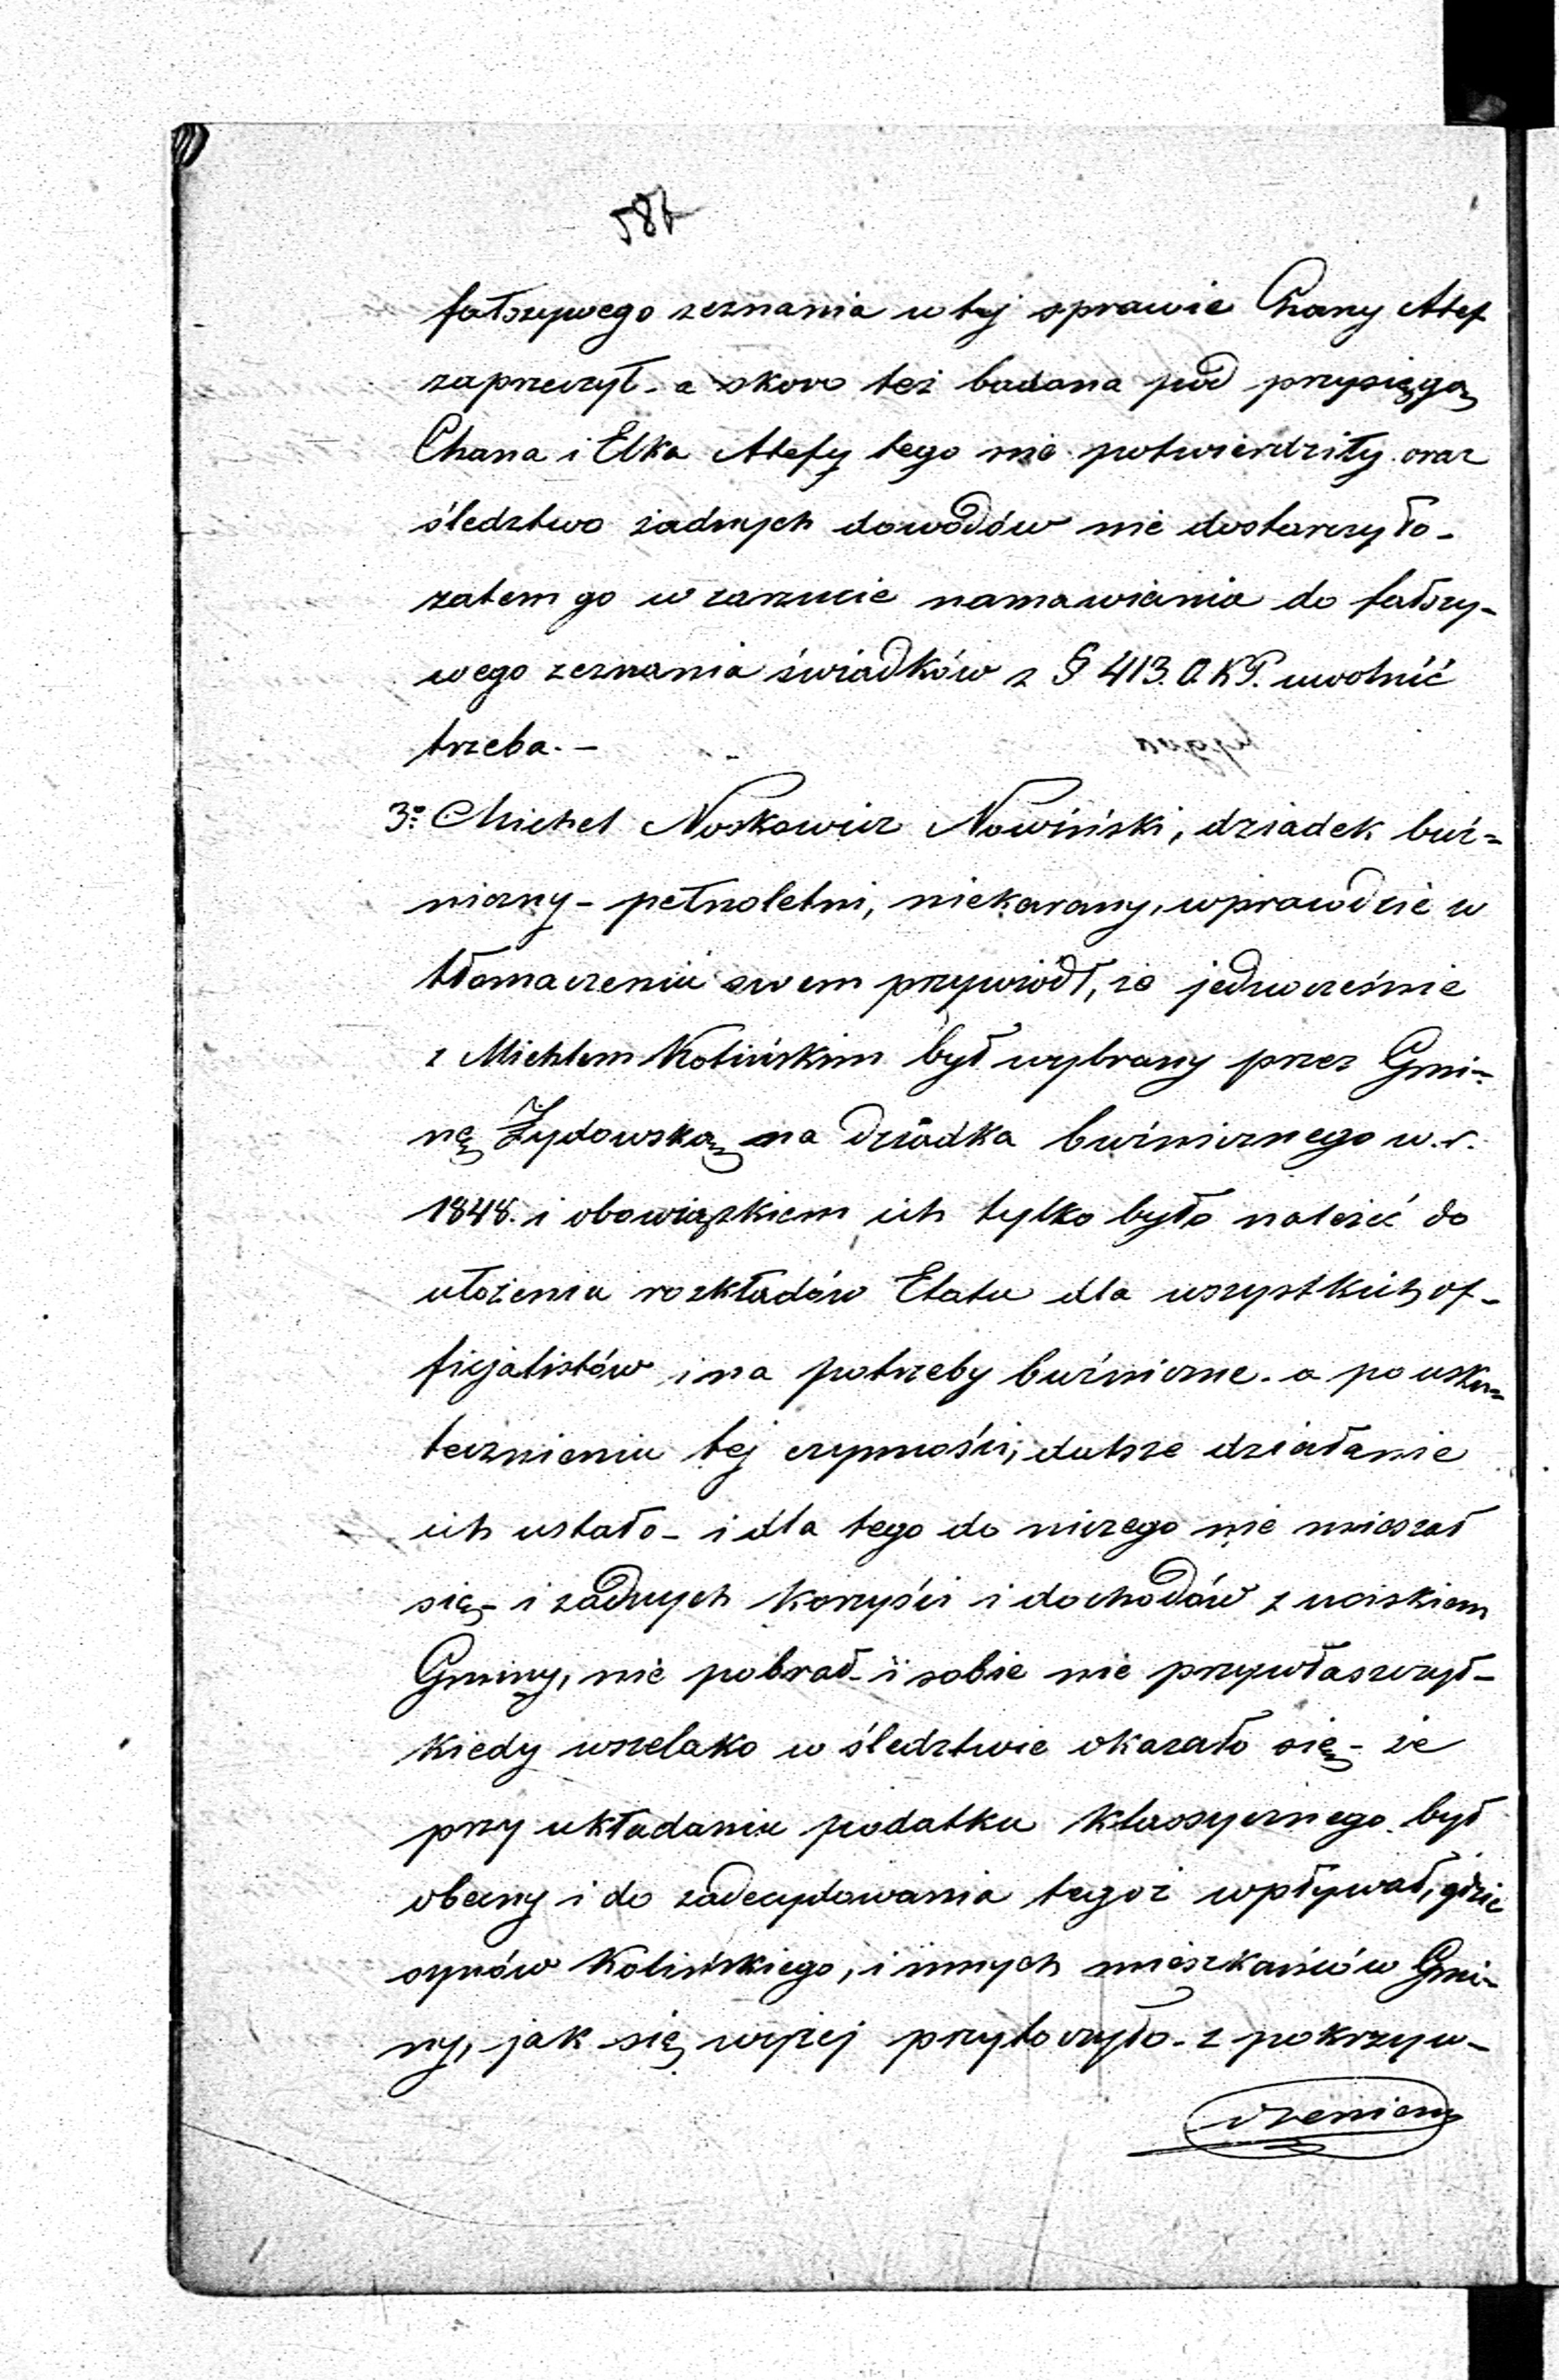 587
fałszywego zeznania w tej sprawie Chany Alef
zaprzeczył - a skoro też badana pod przysięgą
Chana i Elka Alefy tego nie potwierdziły oraz
śledztwo żadnych dowodów nie dostarczyło -
zatem go w zarzucie namawiania do fałszy-
wego zeznania świadków z § 413. O.K.P. uwolnić
trzeba. -
3º Michel Noskowicz Nowiński, dziadek buź-
niczny - pełnoletni, niekarany, wprawdzie w
tłomaczeniu swem przywiódł, że jednocześnie
z Michlem Kolińskim był wybrany przez Gmi-
nę Żydowską na dziadka buźnicznego w. r.
1848. i obowiązkiem ich tylko było należeć do
ułożenia rozkładów Etatu dla wszystkich of-
ficjalistów i na potrzeby buźniczne. a po usku-
tecznieniu tej czynności, dalsze działanie
ich ustało - i dla tego do niczego nie mieszał
się - i żadnych korzyści i dochodów z uciskiem
Gminy, nie pobrał - i sobie nie przywłaszczył -
kiedy wszelako w śledztwie okazało się - że
przy układaniu podatku klassycznego był
obecny i do zadecydowania tegoż wpływał, gdzie
synów Kolińskiego, i innych mieszkańców Gmi-
ny, jak się wyżej przytoczyło - z pokrzyw-
dzeniem